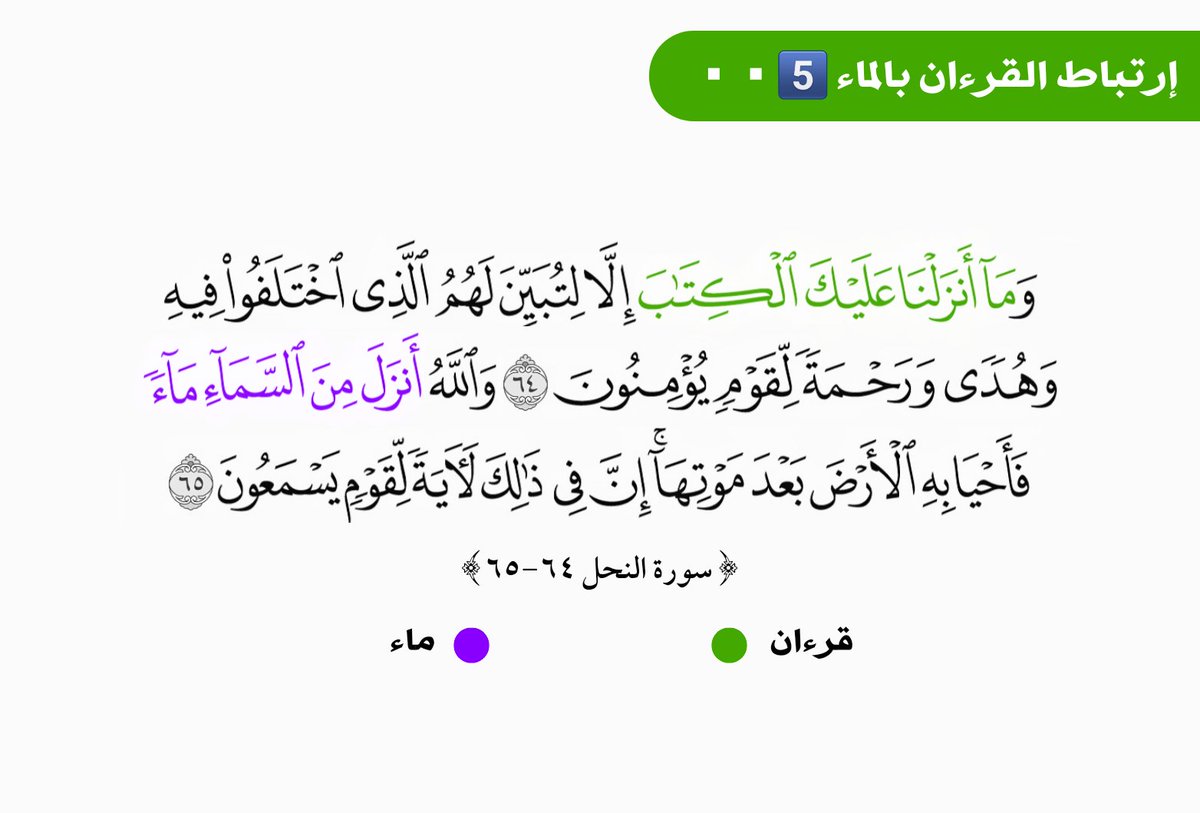 إرتباط القرءان بالماء 5️⃣ ▪ ▪
وَمَآ أَنزَلْنَا عَلَيْكَ ٱلْكِتَـٰبَ إِلَّا لِتُبَيِّنَ لَهُمُ ٱلَّذِى ٱخْتَلَفُوا۟ فِيهِ
وَهُدًى وَرَحْمَةً لِّقَوْمٍ يُؤْمِنُونَ ٦٤ وَٱللَّهُ أَنزَلَ مِنَ ٱلسَّمَآءِ مَآءً
فَأَحْيَا بِهِ ٱلْأَرْضَ بَعْدَ مَوْتِهَآ ۚ إِنَّ فِى ذَٰلِكَ لَـَٔايَةً لِّقَوْمٍ يَسْمَعُونَ ٦٥
﴿ سورة النحل ٦٤-٦٥ ﴾
قرءان ماء